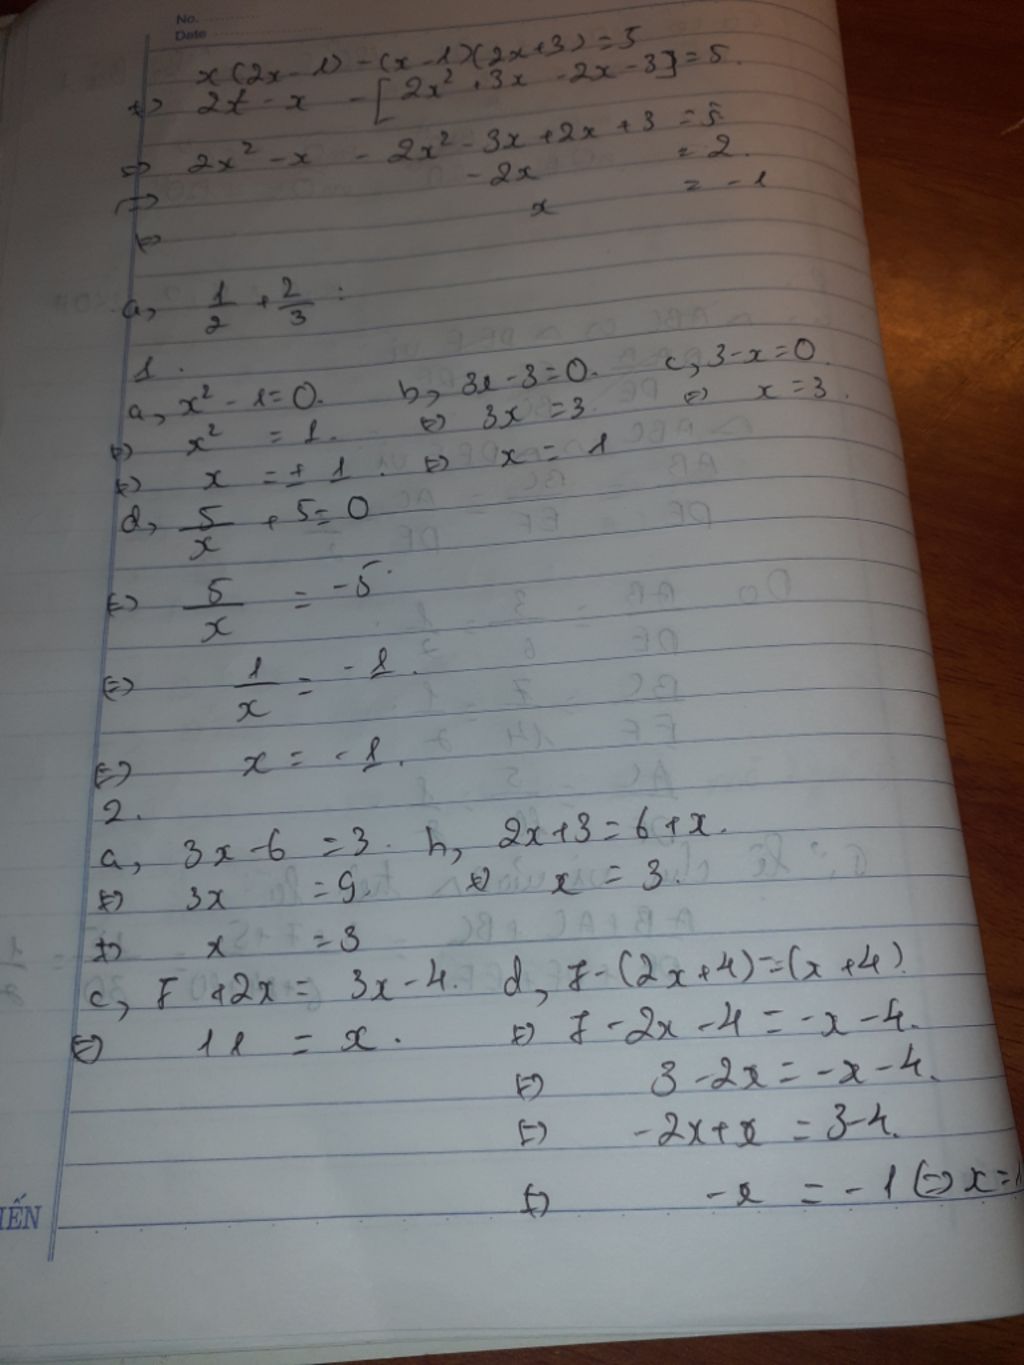 No.
Date
x(2x-1) - (x-1)(2x+3) = 5
⇔ 2x² - x - [2x² + 3x - 2x - 3] = 5.
⇔ 2x² - x - 2x² - 3x + 2x + 3 = 5
⇔ -2x = 2.
⇔ x = -1
a, 1/2 + 2/3 :
1.
a, x² - 1 = 0. b, 3x - 3 = 0. c, 3 - x = 0.
⇔ x² = 1. ⇔ 3x = 3 ⇔ x = 3.
⇔ x = ± 1. ⇔ x = 1
d, 5/x + 5 = 0
⇔ 5/x = -5.
⇔ 1/x = -1.
⇔ x = -1.
2.
a, 3x - 6 = 3. b, 2x + 3 = 6 + x.
⇔ 3x = 9. ⇔ x = 3.
⇔ x = 3
c, 7 + 2x = 3x - 4. d, 7 - (2x + 4) = (x + 4).
⇔ 11 = x. ⇔ 7 - 2x - 4 = -x - 4.
⇔ 3 - 2x = -x - 4.
⇔ -2x + x = 3 - 4.
⇔ -x = -1 ⇔ x = 1
IẾN